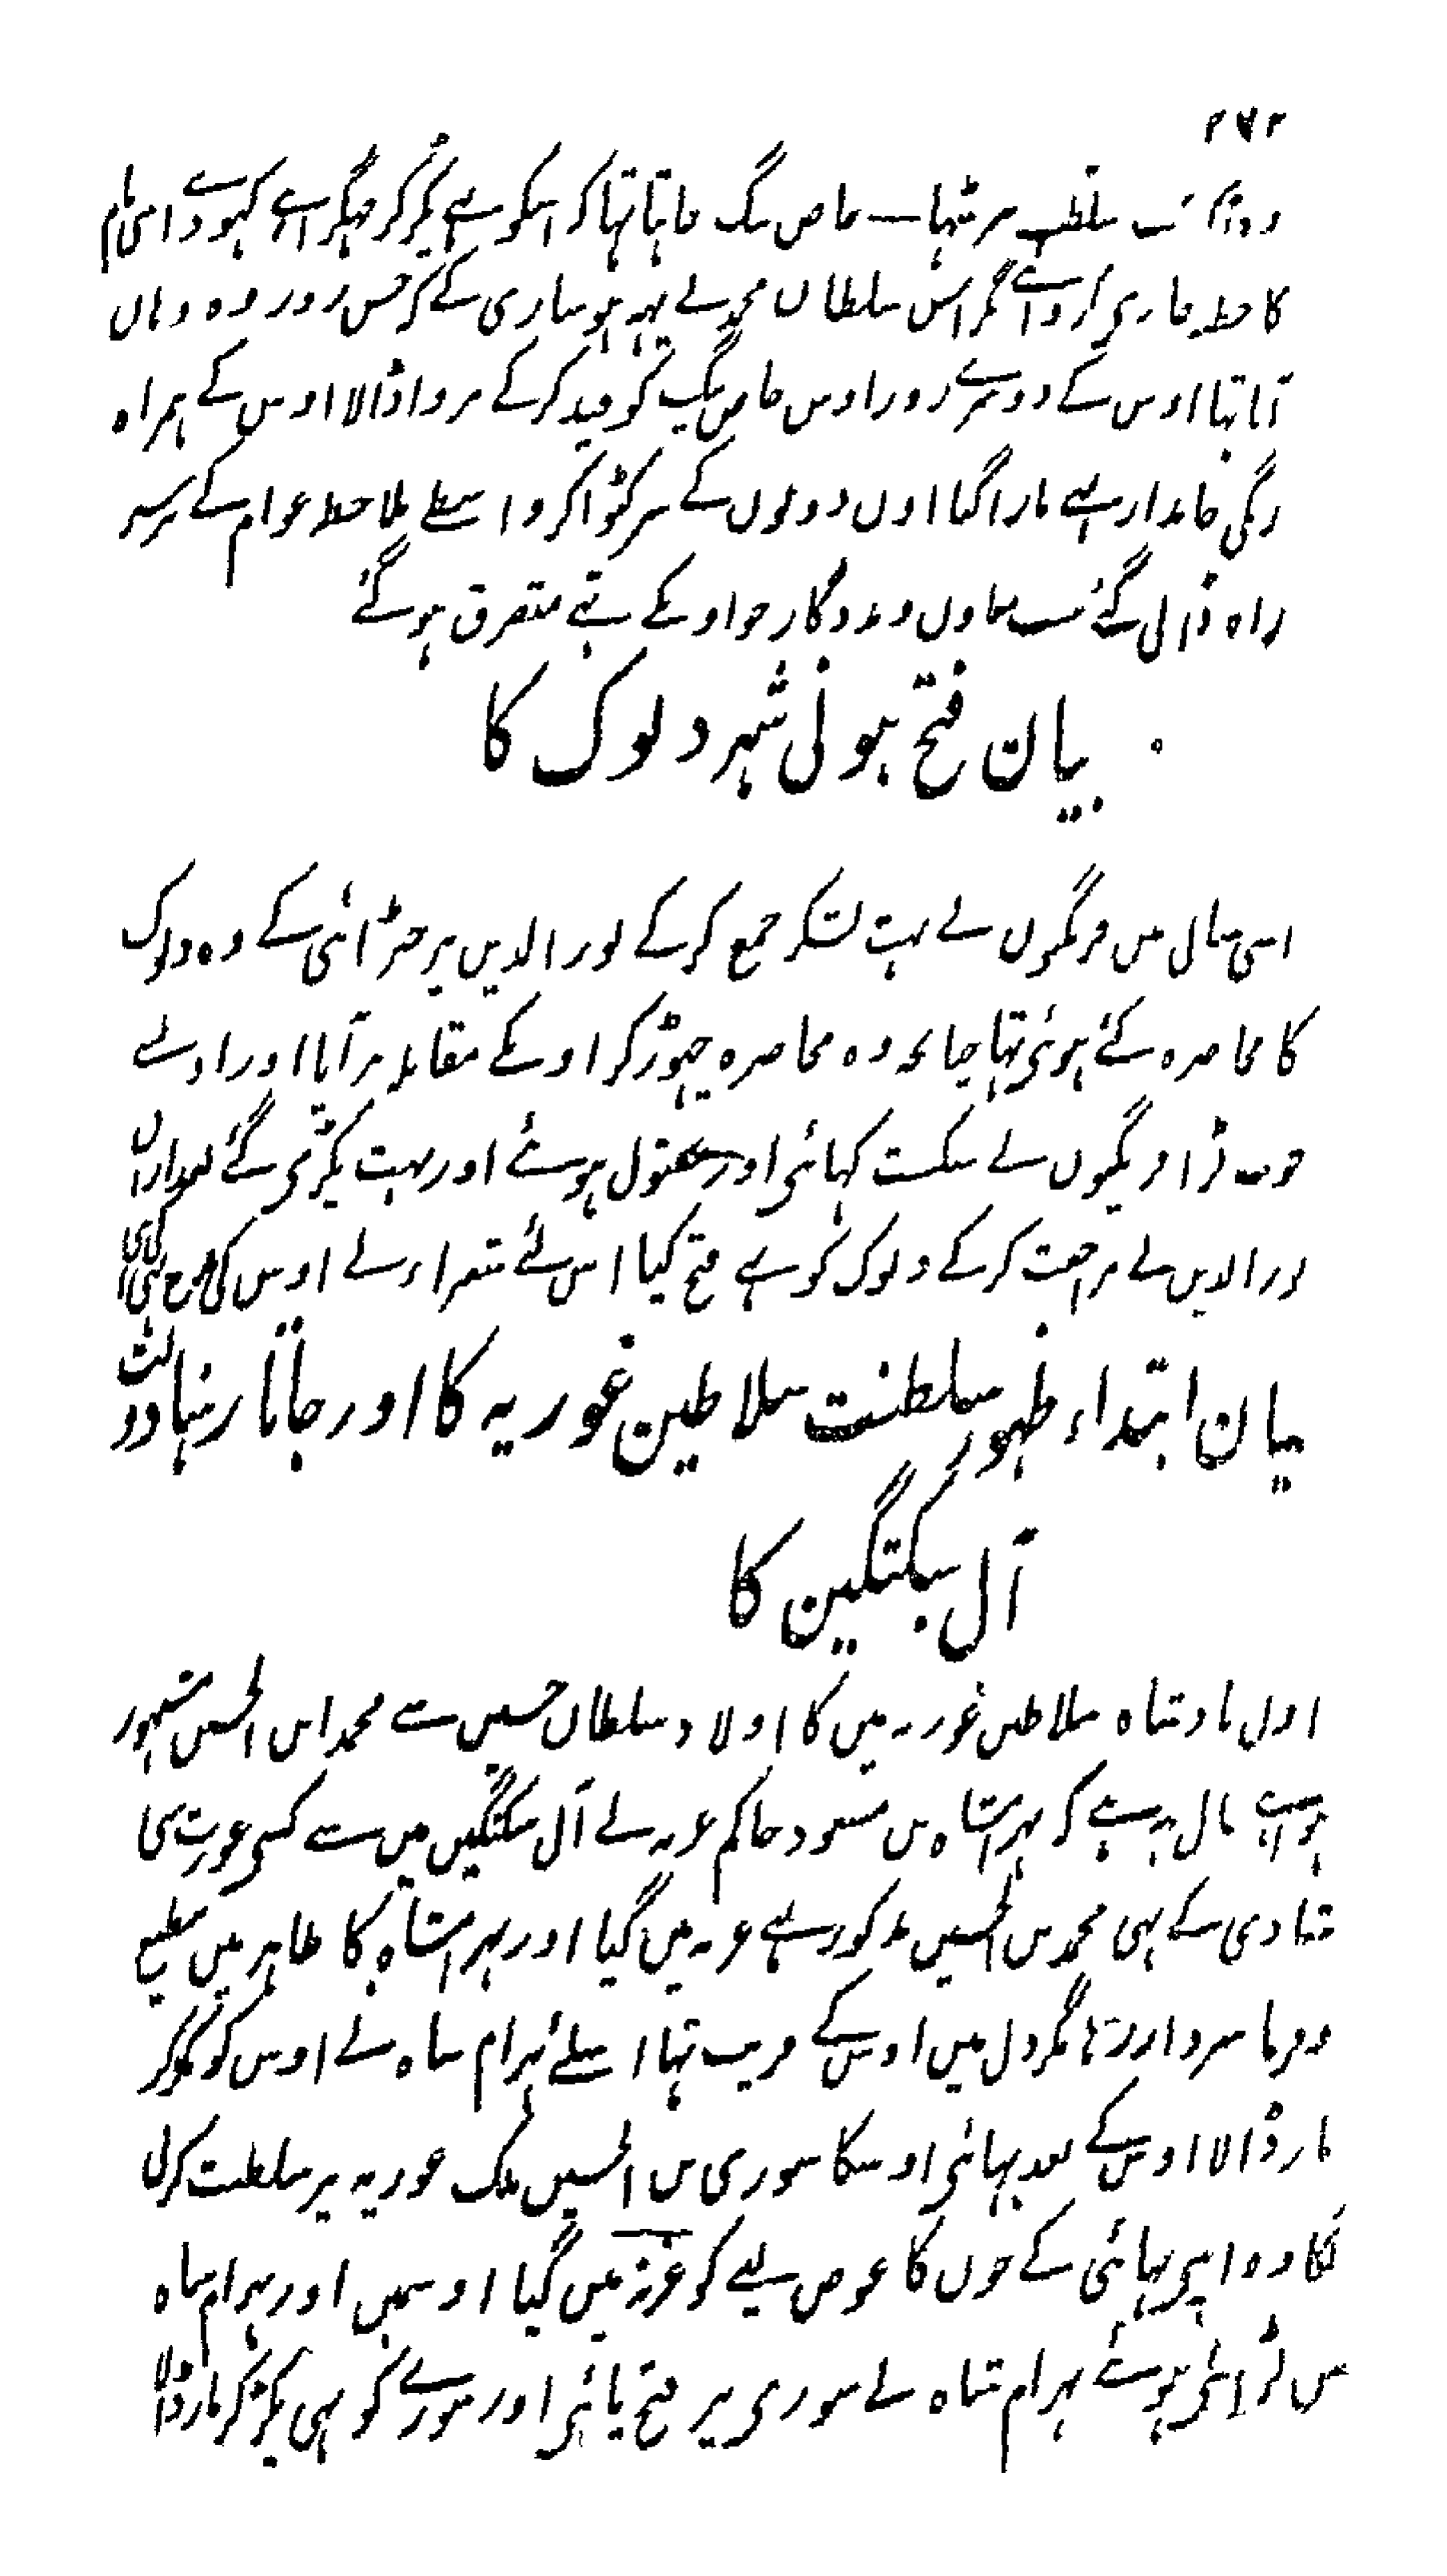 ۲۷۲
سلطنت پر بیٹھا خاص بیگ چاہتا تھا کہ اسکو بھی پکڑ کر جھگڑا کہو دے اسی نام
کا خطبہ جاری کروائے مگر اس سلطان محمد نے یہہ ہوشیاری کے کہ جس روز وہ وہاں
آیا تھا اوس کے دوسرے روز اوس خاص بیگ کو قید کر کے مروا ڈالا اوس کے ہمراہ
زنگی جاندار بھی مارا گیا اون دونوں کے سر کٹوا کر واسطے ملاحظہ عوام کے بر سر
راہ ڈالی گئے سب معاون و مددگار جو اوسکے تھے متفرق ہو گئے
بیان فتح ہونی شہر دلوک کا
اسی سال میں فرنگیوں نے بہت لشکر جمع کر کے نور الدین پر چڑائی کے وہ دلوک
کا محاصرہ کئے ہوئی تھا چنانچہ وہ محاصرہ چھوڑ کر اوسکے مقابلہ پر آیا اور اونسے
خوب لڑا فرنگیوں نے شکست کہائی اور مقتول ہوئے اور بہت پکڑی گئے بعد ازان
نور الدین نے مراجعت کر کے دلوک کو بھی فتح کیا اس لئے شعراء نے اوس کی مدح کی
بیان ابتداء ظہور سلطنت سلاطین غوریہ کا اور جاتا رہنا دولت
آل سبکتگین کا
اول بادشاہ سلاطین غوریہ میں کا اولاد سلطان حسین سے محمد ابن الحسین مشہور
ہوا ہے حال یہ ہے کہ بہرامشاہ بن مسعود حاکم غزنہ نے آل سبکتگین میں سے کسی عورت سی
شادی کے تہی محمد بن الحسین مذکور بھی غزنہ میں گیا اور بہرامشاہ کا ظاہر میں مطیع
و فرمابردار رہتا مگر دل میں اوس کے فریب تھا اسلئے بہرام شاہ نے اوس کو پکڑ کر
مار ڈالا اوس کے بعد بھائی اوسکا سوری بن الحسین ملک غوریہ پر سلطنت کرنی
لگا وہ اپنی بھائی کے خون کا عوض لینے کو غزنہ میں گیا اوسمیں اور بہرام شاہ
میں لڑائی ہوئے بہرام شاہ نے سوری پر فتح پائی اور سوری کو بہی پکڑ کر مار ڈالا